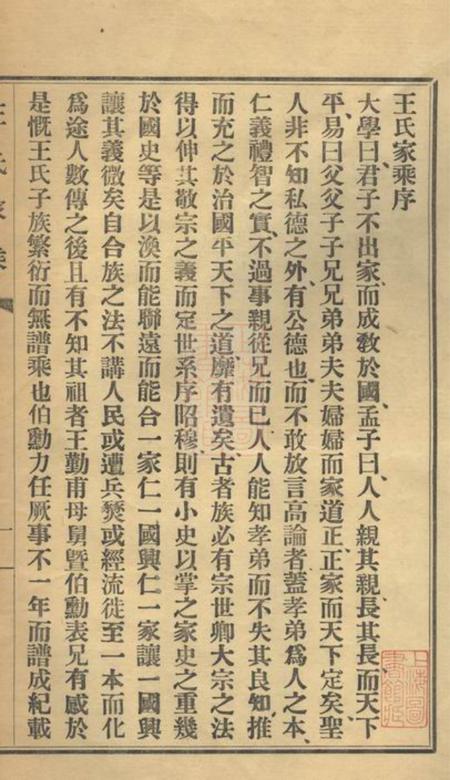 王氏家乘序
大學曰、君子不出家、而成敎於國、孟子曰、人人親其親、長其長、而天下
平、易曰父父子子兄兄弟弟夫夫婦婦而家道正、正家而天下定矣、聖
人非不知私德之外、有公德也、而不敢放言高論者、蓋孝弟爲人之本、
仁義禮智之實、不過事親從兄而已、人人能知孝弟而不失其良知、推
而充之於治國平天下之道、靡有遺矣、古者族必有宗世卿大宗之法
得以伸其敬宗之義而定世系序昭穆、則有小史以掌之家史之重幾
於國史等是以渙而能聯遠而能合一家仁一國興仁一家讓一國興
讓其義微矣自合族之法不講人民或遭兵燹或經流徙至一本而化
爲途人數傳之後且有不知其祖者王勤甫母舅曁伯勳表兄有感於
是慨王氏子族繁衍而無譜乘也伯勳力任厥事不一年而譜成紀載
王氏家乘
一
上海圖書館藏